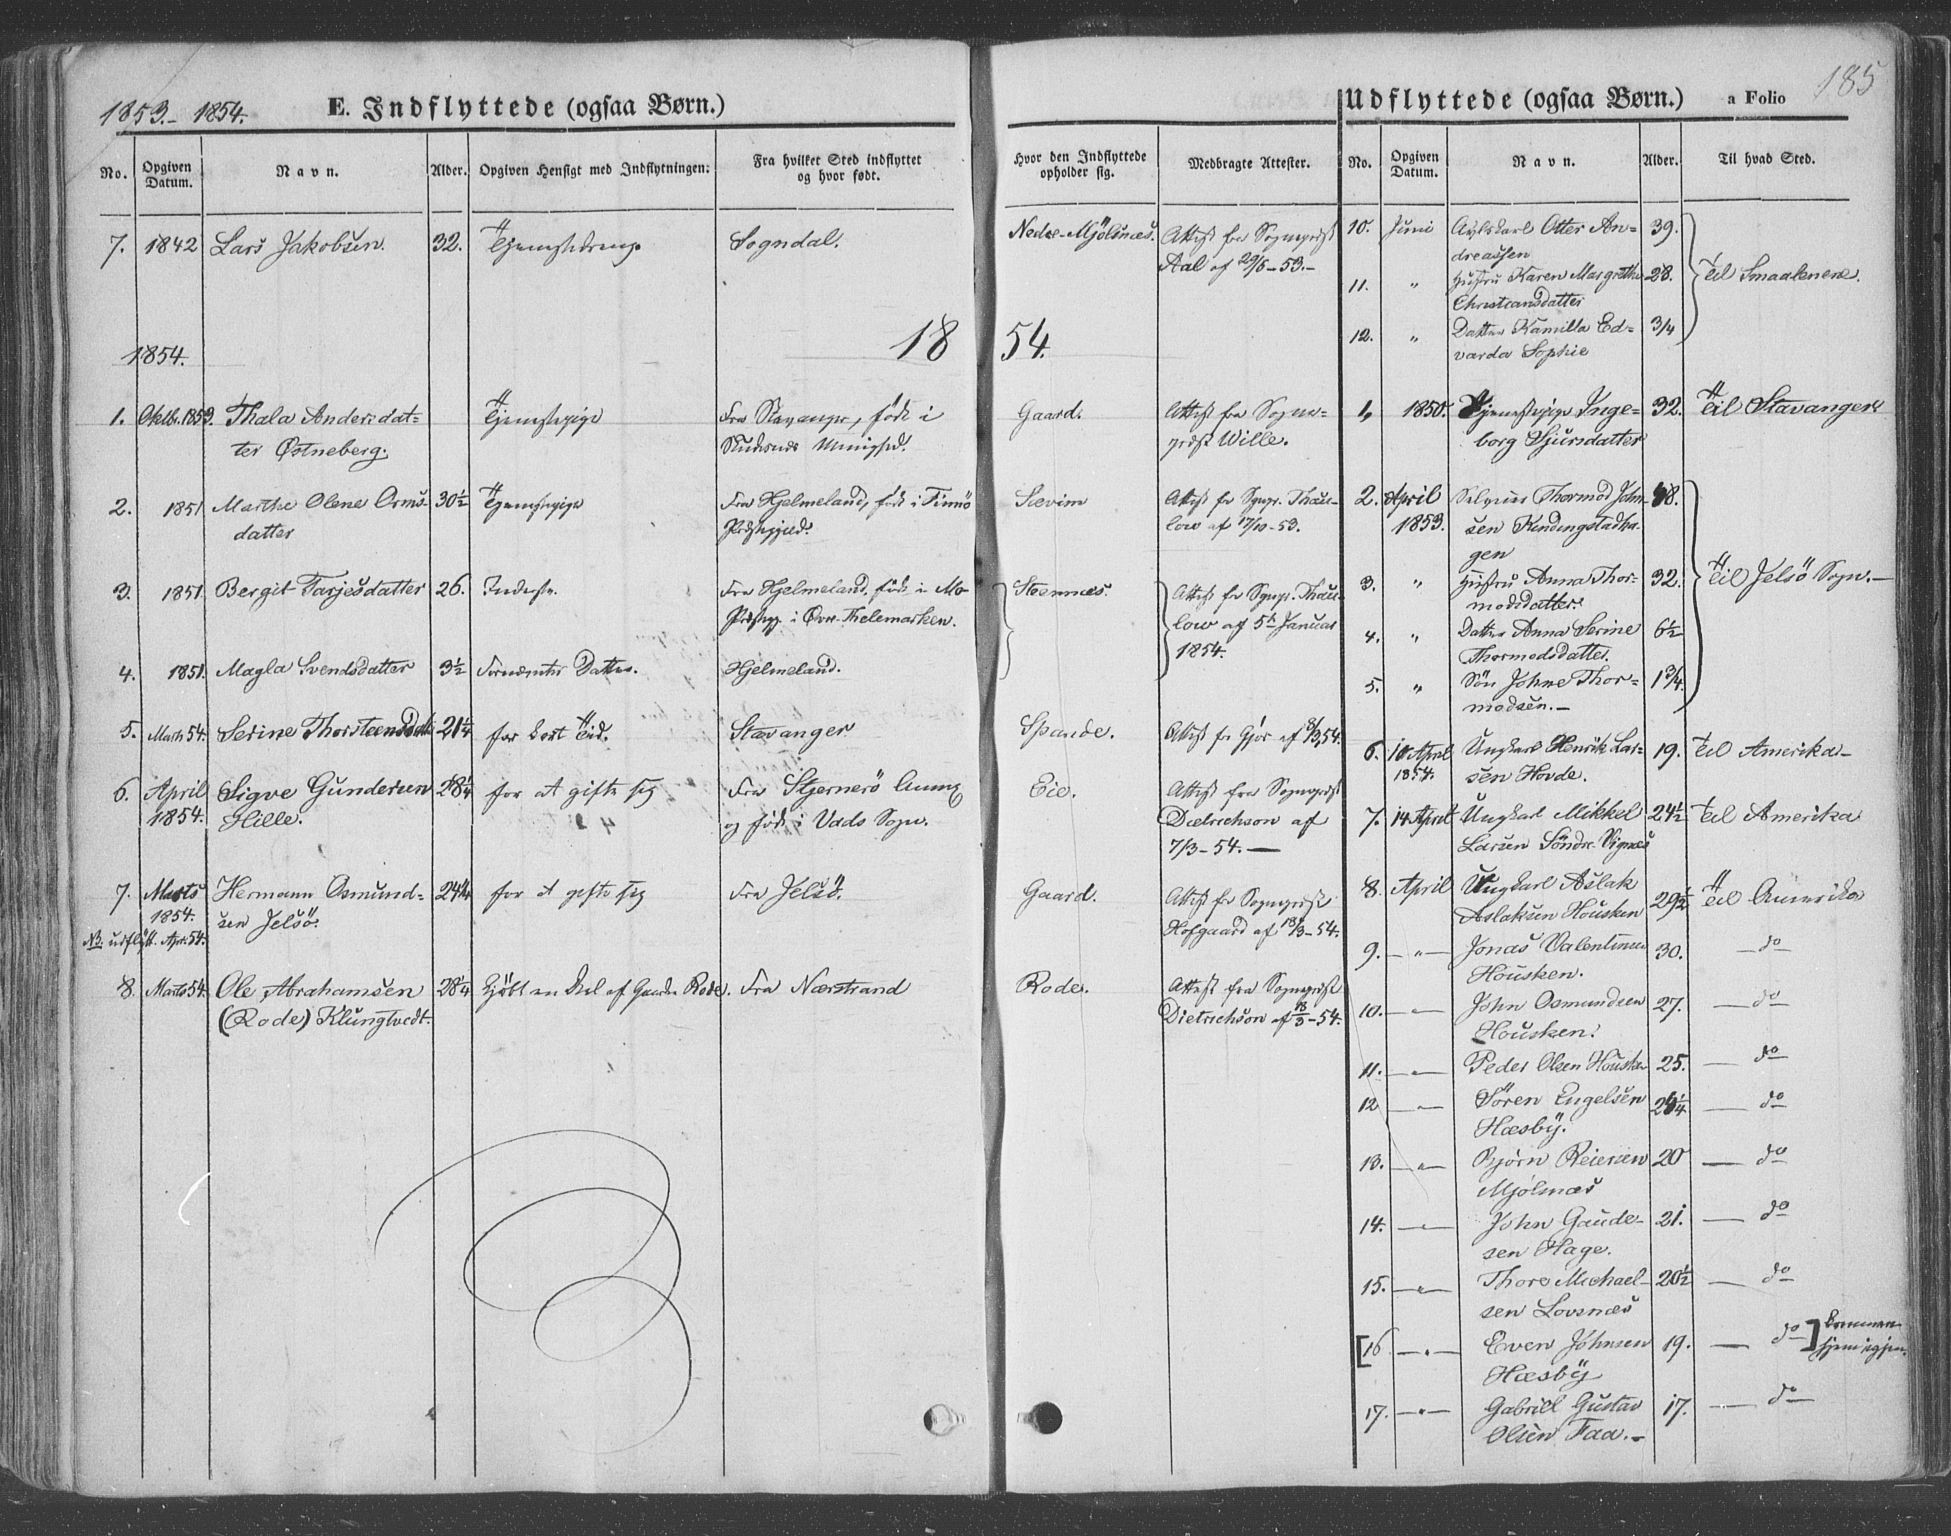 1853.- 1854.
E. Indflyttede (ogsaa Børn.)
No.
Opgiven Datum.
Navn.
Alder.
Opgiven Hensigt med Indflytningen:
Fra hvilket Sted indflyttet
og hvor født.
Hvor den Indflyttede
opholder sig.
Medbragte Attester.
7. 1842 Lars Jakobsen. 32. Tjenestedreng. Sogndal. Nedre-Mjölsnæs. Attest fra Sognepræst
Aal af 29/5-53.-
1854. 18 54.
1. Oktbr. 1853. Thala Andersdat- Tjenestepige Fra Stavanger, født i Gaard. Attest fra Sogne-
ter Østneberg. Skudesnæs Menighed. præst Wille.
2. 1851 Marthe Olene Orms- 30½ Tjenestepige Fra Hjelmeland, født i Finnö Sævim Attest fr Sgnpr. Thau-
datter Præstegjeld. low af 17/10-53.
3. 1851. Bergit Tarjesdatter 26. Inderste. Fra Hjelmeland, født i Mo Stennæs. Attest fr Sgnpr. Thau-
Præstegj. i Øvre Thelemarken. low af 5te Januar
1854.
4. 1851. Magla Svendsdatter 3½ Fornævntes Datter. Hjelmeland.
5. Marts 54. Serine Thorsteensdatt 21¼ for kort Tid. Stavanger Spande. Attest fr Gjør af 8/3 54.
6. April Sigve Gundersen 28¼ for at gifte sig Fra Stjernerö Annex Eie. Attest fra Sognepræst
1854. Hille. og født i Vads Sogn. Dietrichson af
7/3-54.—
7. Marts Hermann Osmund- 24¼ for at gifte sig Fra Jelsö. Gaard. Attest fr Sognepræst
1854. sen Jelsö. Hofgaard af 13/3-54.
NB. udflytt. Apr. 54.
8. Marts 54. Ole Abrahamsen 28¼ kjöbt en Deel af Gaarden Rode. Fra Nærstrand Rode. Attest fra Sognepræst
(Rode) Klungtvedt. Dietrichson af 18/3-54.
185
Udflyttede (ogsaa Børn.) a Folio
No.
Opgiven Datum.
Navn.
Alder.
Til hvad Sted.
10. Juni Avlskarl Otter An- 39.
dreassen
11. " Hustru Karen Margrethe 28. Til Smaalenene.
Christiansdatter
12. " Datter Kamilla Ed- 3/4
varda Sophie
1. 1850. Tjenestepige Inge- 32. Til Stavanger
borg Sjursdatter
2. April Thormod John- 48.
1853. sen Kindingstadha-
gen
3. " Hustru Anna Thor- 32. Til Jelsö Sogn.—
modsdatter.
4. " Datter Anna Serine 6½
Thormodsdatter.
5. " Sön Johne Thor- 1¾.
modsen.—
6. 10 April Ungkarl Henrik Lar- 19. Til Amerika—
1854. sen Hovde.
7. 14 April Ungkarl Mikkel 24½ Til Amerika
Larsen Söndre Vignæs
8. April Ungkarl Aslak
Aslaksen Housken 29½ Til Amerika
9. — " — Jonas Valentinsen 30. — do
Housken.
10. — " — John Osmundsen 27. — do
Housken.
11. — " — Peder Olsen Housken 25. — do
12 — " — Sören Engelsen 26¼ — do
Hæsbÿ.
13. — " — Bjørn Reiersen 20 — do
Mjölnæs
14. — " — John Gaude- 21. — do
sen Hage.
15. — " — Thore Michael- 20½ — do
sen Lovsnæs
[16 — " — Even Johnsen 19. — do ] kommen
Hæsbÿ hjem igjen.
17. — " — Gabriel Gustav 17. — do
Olsen Faa.—